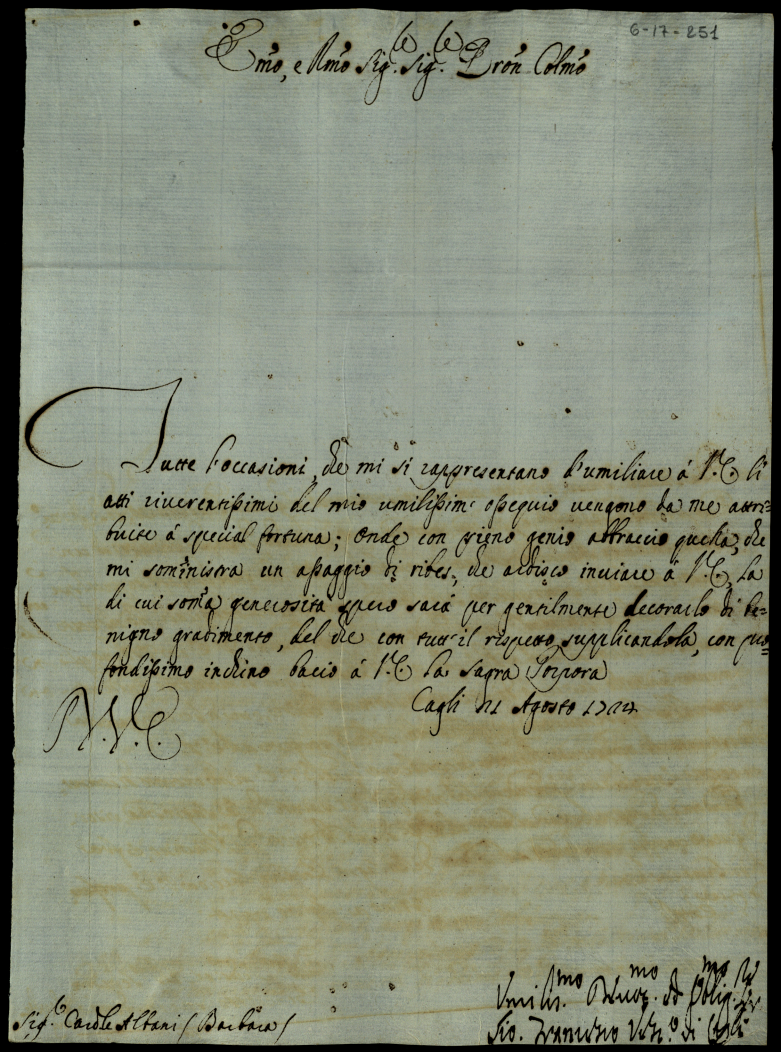 6-17-251
Emo, e Rmo Sig.re Sig.re Pron Colmo
Tutte l'occasioni, che mi si rappresentano d'umiliare á V.E. li
atti riverentissimi del mio umilissim.o ossequio vengono da me attri=
buite á special fortuna; onde con pieno genio abbraccio quella, che
mi somīnistra un assaggio di ribes, che ardisco inviare á V.E., la
di cui som̄a generosità spero sarà per gentilmente decorarlo di be=
nigno gradimento, del che con tutt'il rispetto supplicandola, con pro=
fondissimo inchino bacio á V.E. la Sagra Porpora
Cagli 21 Agosto 1724
V.E.
Umiliss.mo Devot.mo ed Obblig.mo
Gio. Francesco Vesc.o di Cagli
Sig.r Cardle Albani (Barbara)